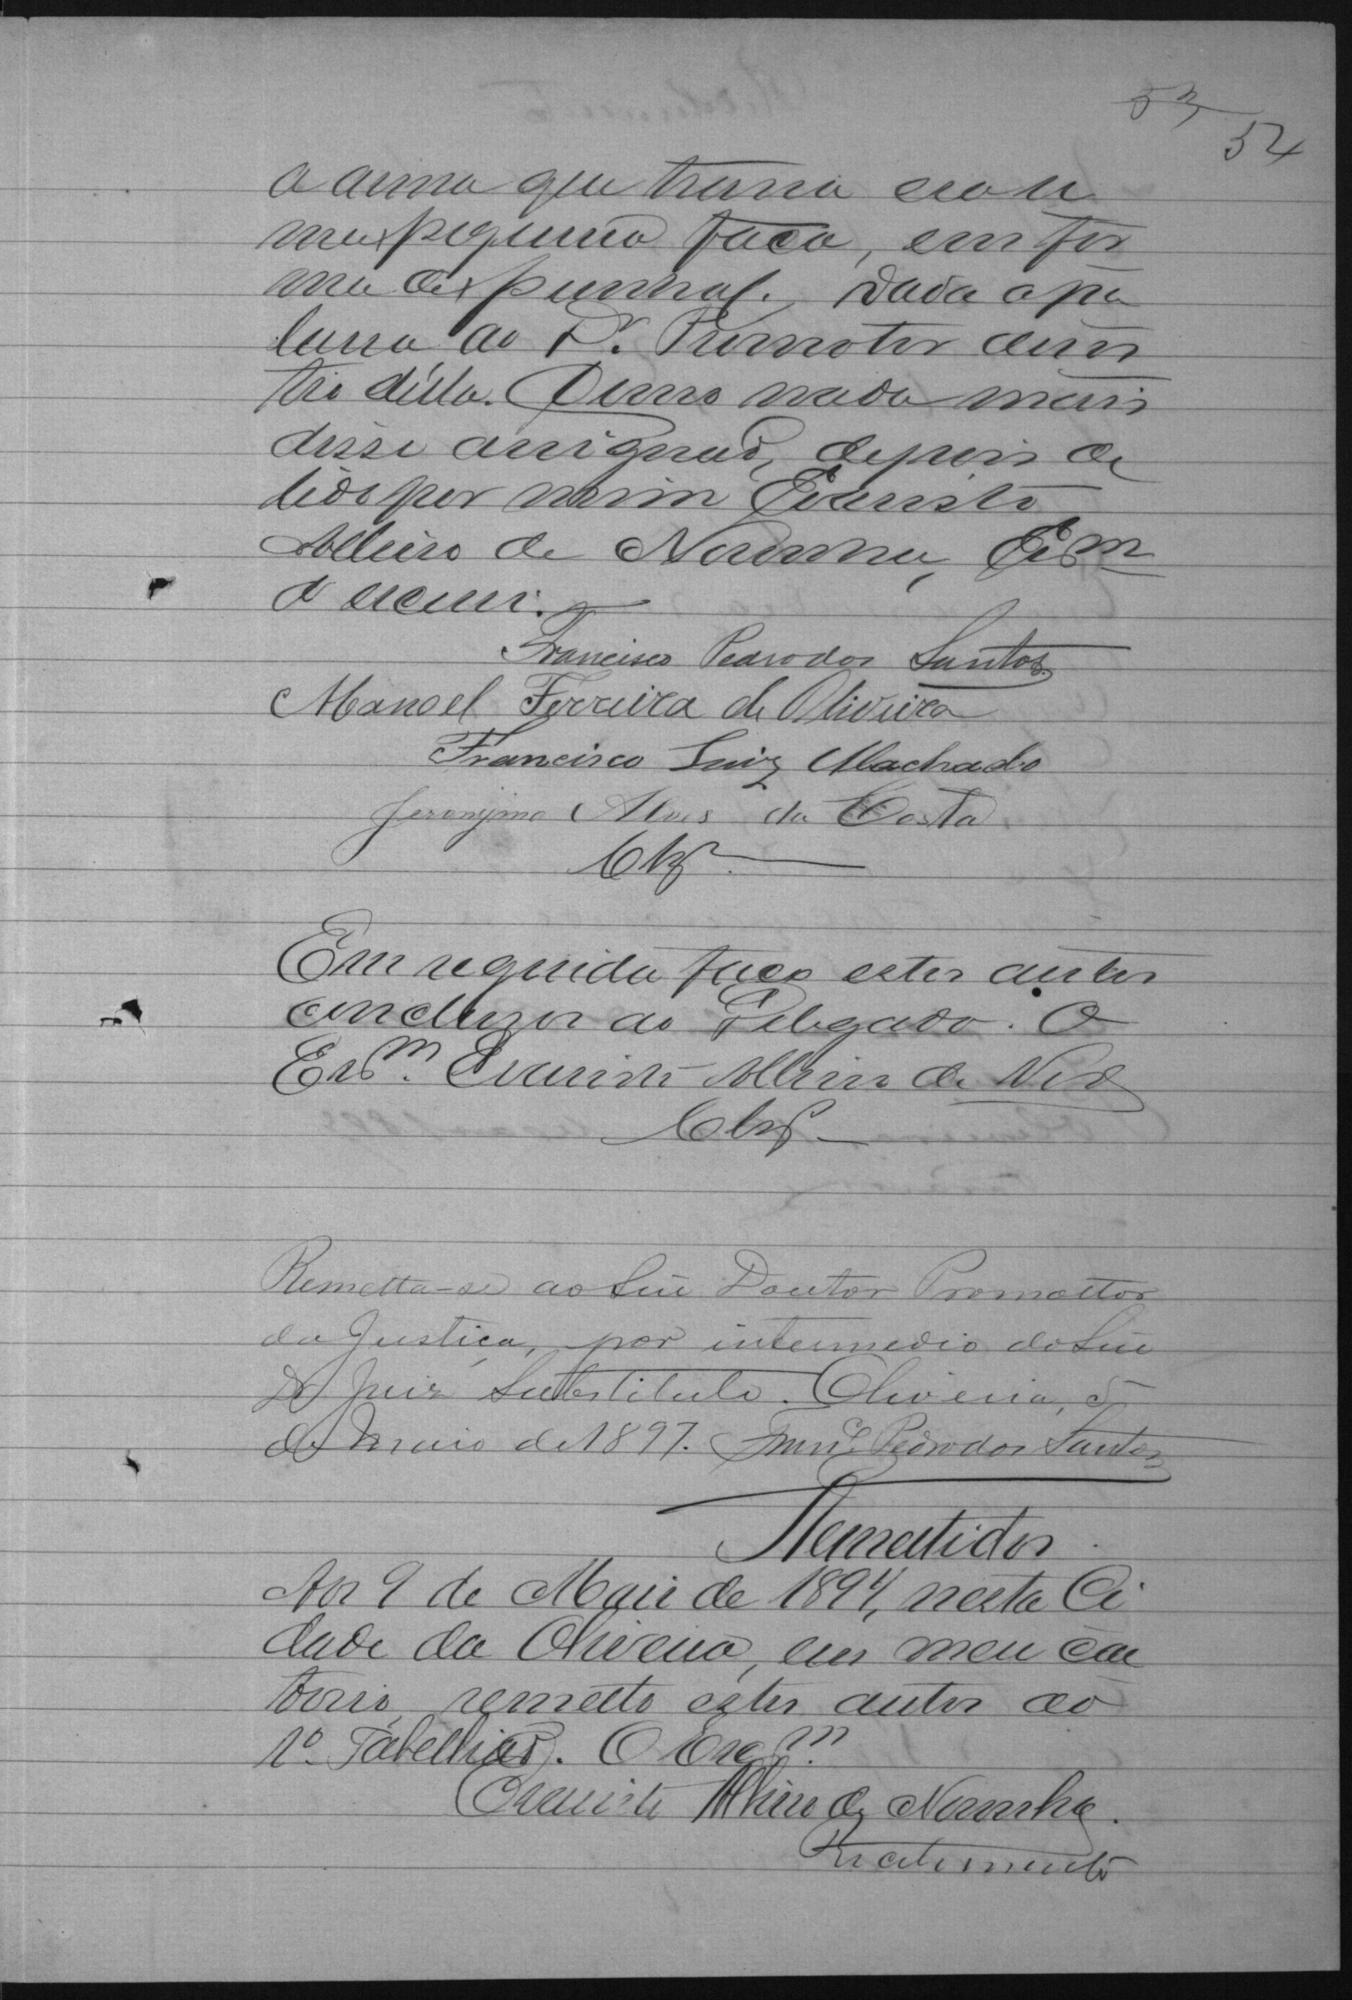 53
54
a arma que trazia era u
ma pequena faca, em for
ma de punhal. Dada a pa
lavra ao Dr. Promotor desis
tio della. Como nada mais
disse assignão, depois de
lido por mim Evaristo
de Noronha, Escm
o escrevi.
Francisco Pedro dos Santos
Manoel Ferreira de Oliveira
Francisco Luiz Machado
Jeronymo Alves da Costa
Clsº
Em seguida faço estes autos
conclusos ao Delegado. O
Escm. Evaristo de Nora
Clsº
Remetta-se ao Snr Doutor Promottor
da Justiça, por intermedio do Snr
Dr Juiz Substituto. Oliveira, 5
de Maio de 1897. Franco Pedro dos Santos
Remettidos
Aos 9 de Maio de 1897, nesta Ci
dade da Oliveira, em meu car
torio, remetto estes autos ao
1º Tabellião. O Escm
Evaristo de Noronha.
Recebimento